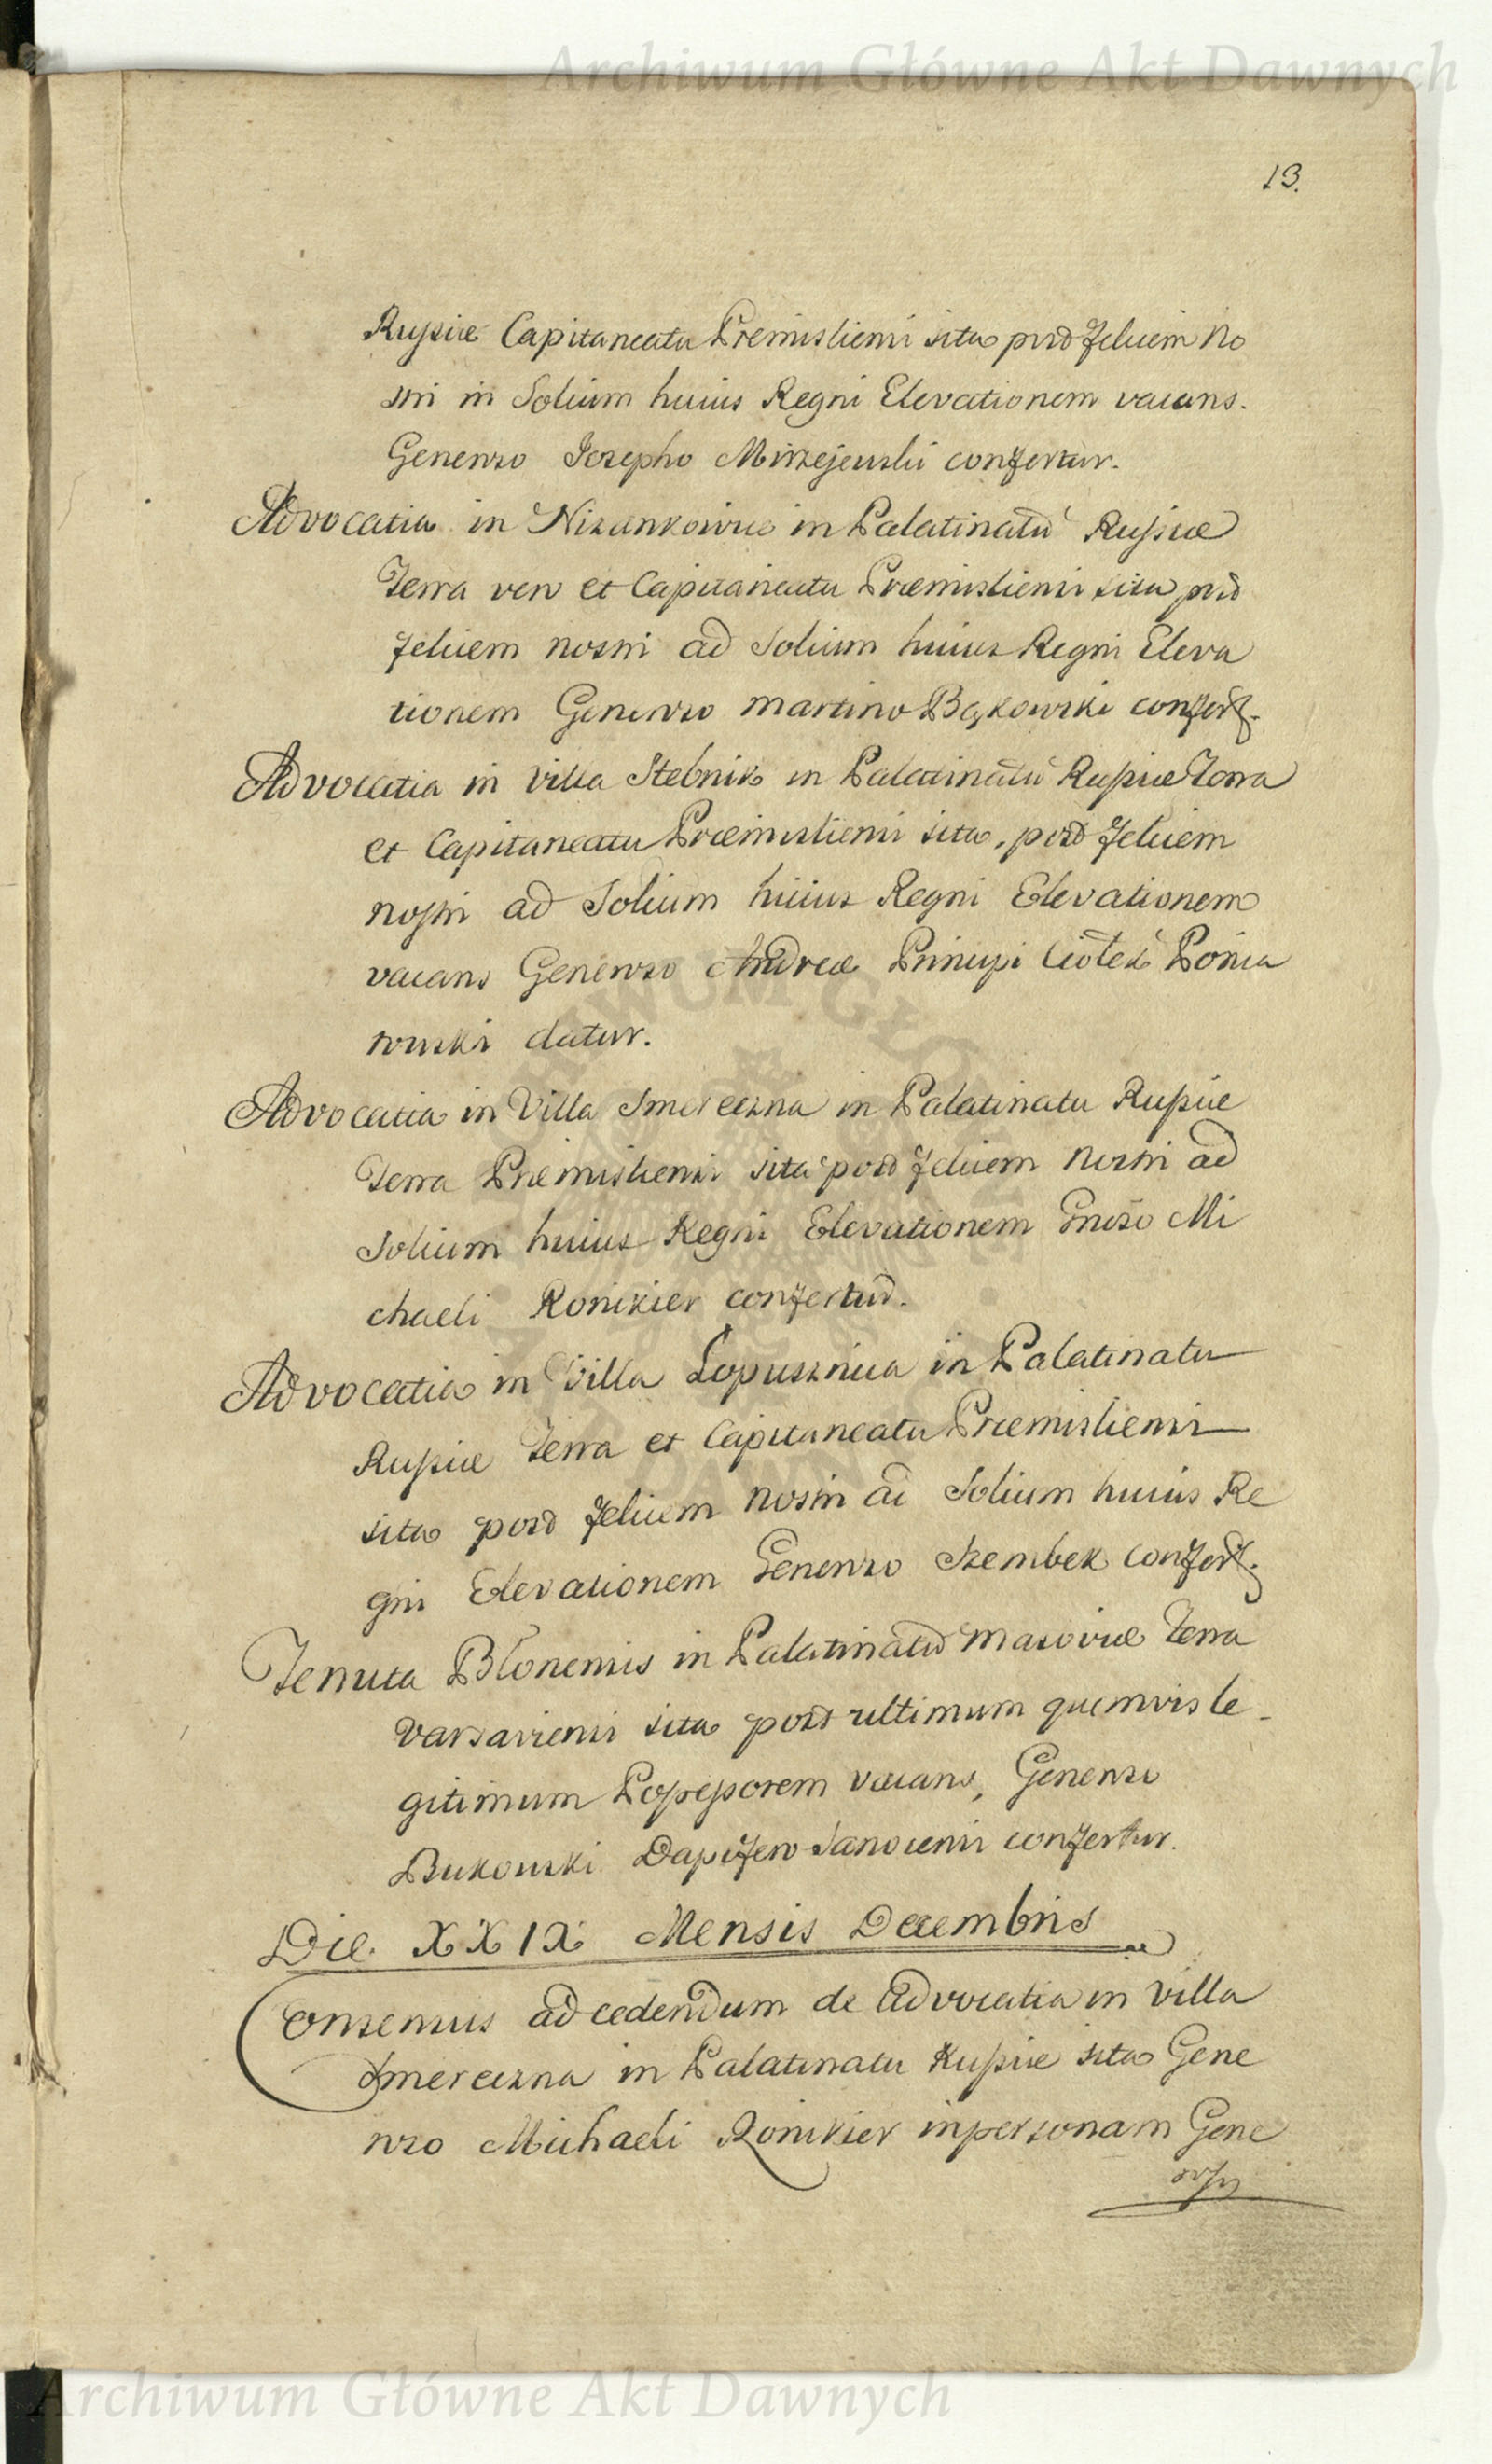 Archiwum Główne Akt Dawnych
13.
Russiæ Capitaneatu Premisliensi sita post felicem No
stri in Solium huius Regni Elevationem vacans.
Generoso Josepho Mirzejewski confertur.
Advocatia in Nizankowice in Palatinatu Russiæ
Terra vero et Capitaneatu Præmisliensi sita post
felicem nostri ad Solium huius Regni Eleva
tionem Generoso Martino Bąkowski confert.
Advocatia in Villa Stebnik in Palatinatu Russiæ Terra
et Capitaneatu Præmisliensi sita, post felicem
nostri ad Solium huius Regni Elevationem
vacans Generoso Andreæ Principi Ciołek Ponia
towski datur.
Advocatia in Villa Smereczna in Palatinatu Russiæ
Terra Præmisliensi sita post felicem Nostri ad
Solium huius Regni Elevationem Gnoso Mi
chaeli Ronikier confertur.
Advocatia in Villa Lopusznica in Palatinatu
Russiæ Terra et Capitaneatu Præmisliensi
sita post felicem Nostri ad Solium huius Re
gni Elevationem Generoso Szembek confert.
Tenuta Blonensis in Palatinatu Masoviæ Terra
Varsaviensi sita post ultimum quemvis le-
gitimum Possessorem vacans, Generoso
Bukowski Dapifero Sanocensi confertur.
Die XXIX Mensis Decembris
Consensus ad cedendum de Advocatia in Villa
Smereczna in Palatinatu Russiæ sita Gene
roso Michaeli Ronikier in personam Gene
rosi
Archiwum Główne Akt Dawnych